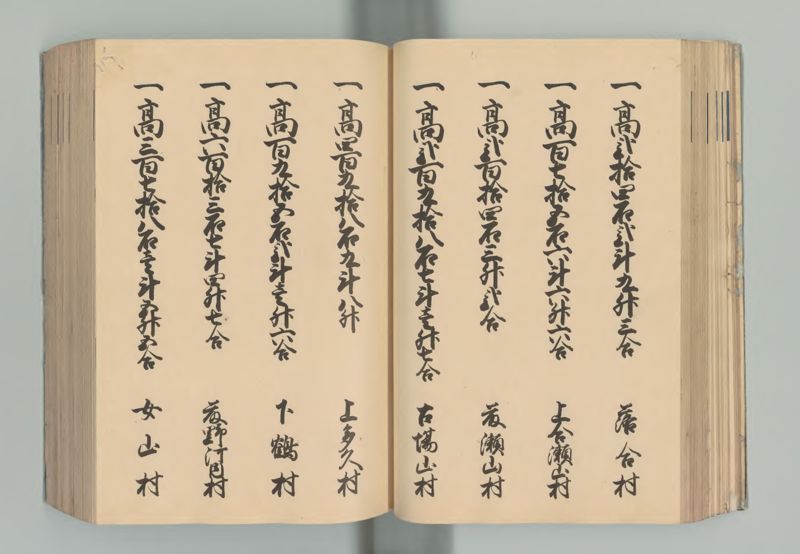 一高弐拾四石弐斗九升三合 落合村
一高百七拾五石六斗六升六合 上合瀬山村
一高弐百拾四石三升弐合 藤瀬山村
一高弐百九拾八石七斗壱升七合 古場山村
一高四百九拾八石九斗八升 上多久村
一高百九拾五石弐斗壱升六合 下鶴村
一高六百拾三石七斗四升七合 村
一高三百七拾八石壱斗五升五合 女山村